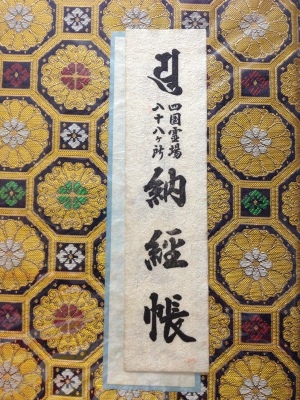 𑖮𑖿𑖨𑖱𑖾
四国霊場
八十八ヶ所
納経帳